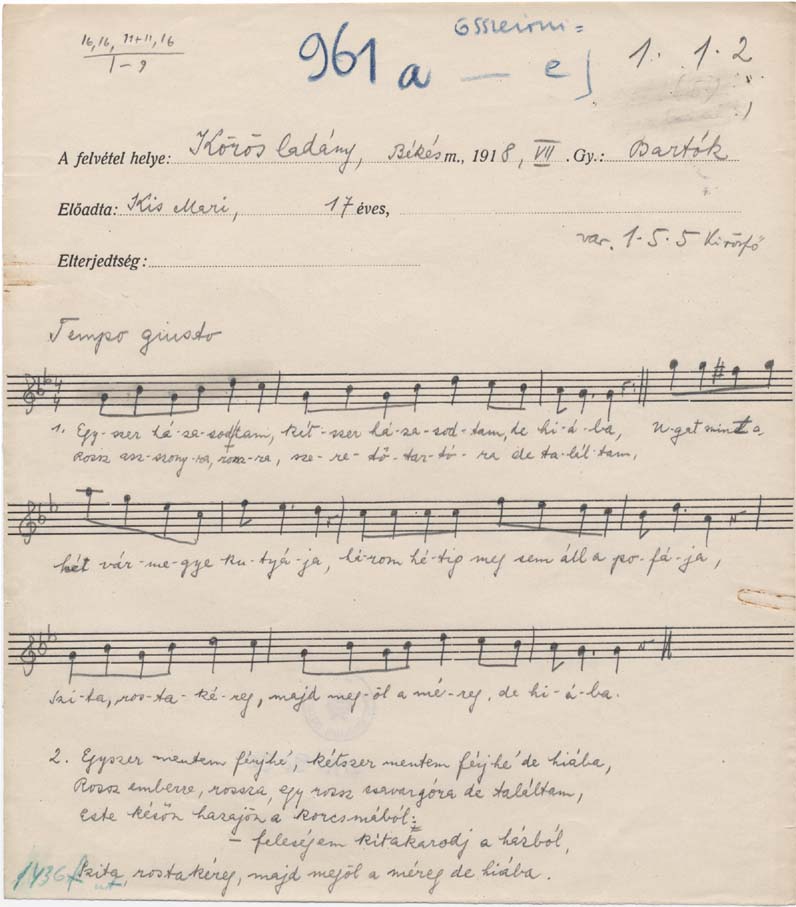 16, 16, 11+11, 16
1-9
961 a — e)
összeírni =
1. 1. 2
A felvétel helye: Körösladány, Békés m., 1918, VII. Gy.: Bartók
Előadta: Kis Mari, 17 éves,
var. 1-5.5 Kirösfő
Elterjedtség:
Tempo giusto
1. Egy-szer há-za-sodtam, két-szer há-za-sod-tam, de hi-á-ba, U-gat mint a
Rossz asz-szony-ra, rosz-ra, sze-re-tő-tar-tó-ra de ta-lál-tam,
két vár-me-gye ku-tyá-ja, há-rom hé-tig meg sem áll a po-fá-ja,
Szi-ta, ros-ta-ké-reg, majd meg-öl a mé-reg, de hi-á-ba.
2. Egyszer mentem férjhé', kétszer mentem férjhé' de hiába,
Rossz emberre, rossza, egy rossz csavargóra de találtam,
Este későn hazajön a korcsmából:
— feleségem kitakarodj a házból,
Szita, rostakéreg, majd mejöl a méreg de hiába.
1436f